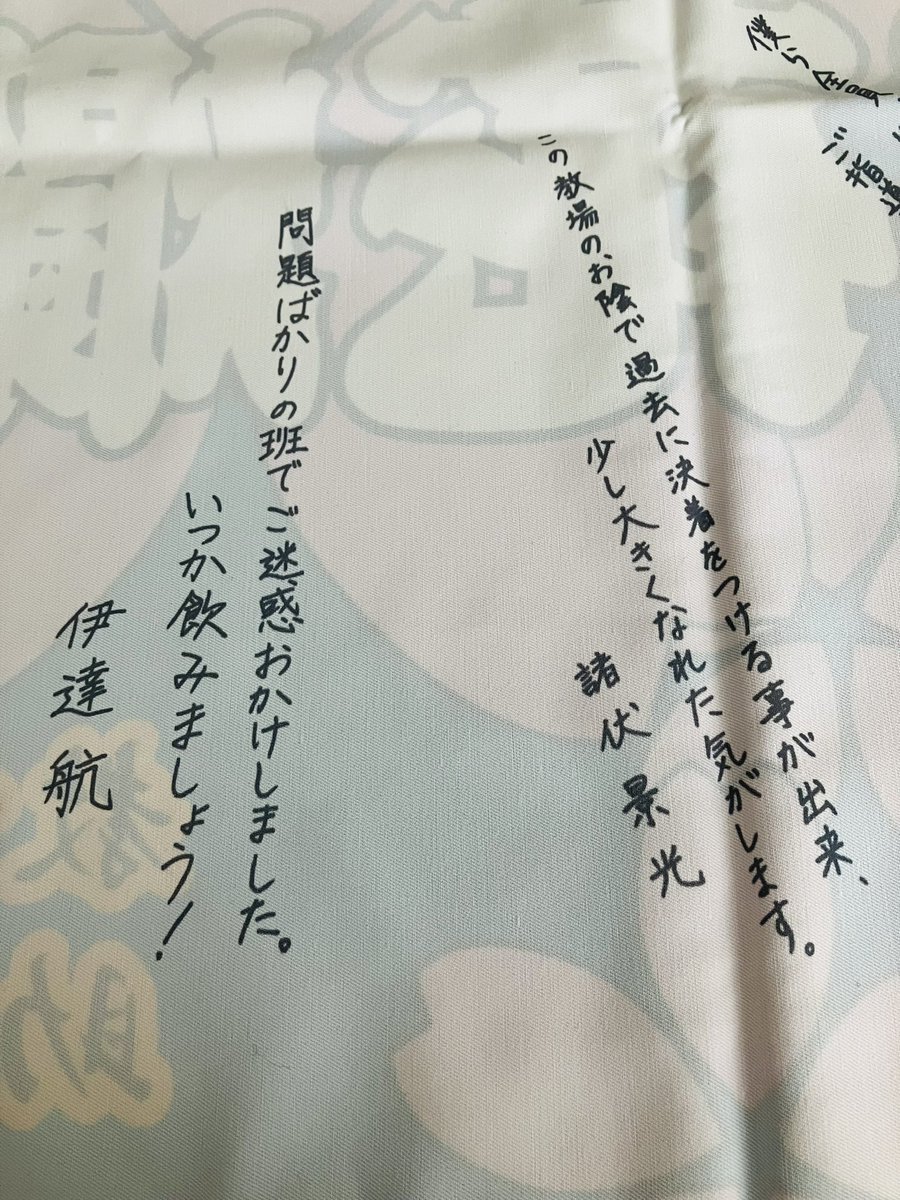 僕ら全員
ご指導
この教場のお陰で過去に決着をつける事が出来、
少し大きくなれた気がします。
諸伏景光
問題ばかりの班でご迷惑おかけしました。
いつか飲みましょう!
伊達航
助